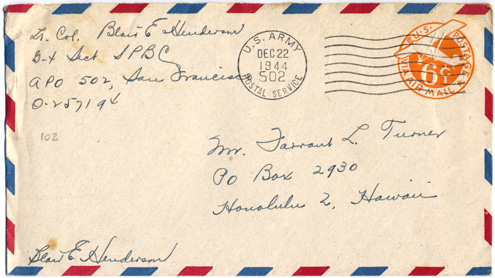 Lt. Col. Blair E Henderson
G-4 Sect SPBC
APO 502, San Francisco
O-257194
102
U.S. ARMY
DEC 22
1944
502
POSTAL SERVICE
U.S. POSTAGE
6¢
VIA AIR MAIL
Mr. Farrant L. Turner
PO Box 2930
Honolulu 2, Hawaii
Blair E Henderson